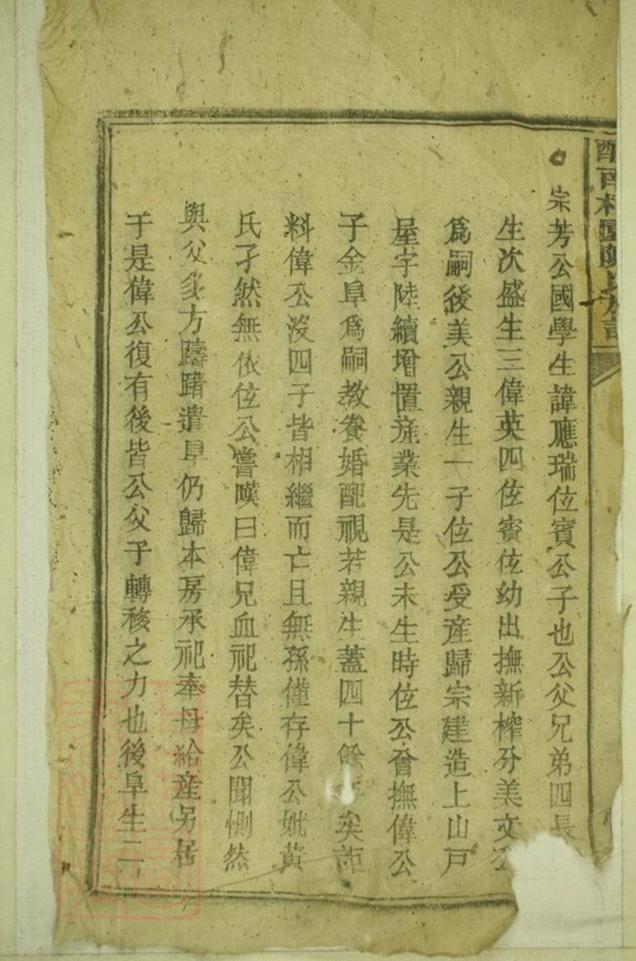 宗芳公國學生諱應瑞位賓公子也公父兄弟四長
生次盛生三偉英四位賓位幼出撫新榨分美文公
爲嗣後美公親生一子位公受産歸宗建造上山戸
屋宇陸續增置産業先是公未生時位公曾撫偉公
子金阜爲嗣教養婚配視若親生蓋四十餘年矣詎
料偉公沒四子皆相繼而亡且無孫僅存偉公妣黃
氏孑然無依位公嘗嘆曰偉兄血祀替矣公聞惻然
與父多方躊躇遣阜仍歸本房承祀奉母給産另居
于是偉公復有後皆公父子轉移之力也後阜生二